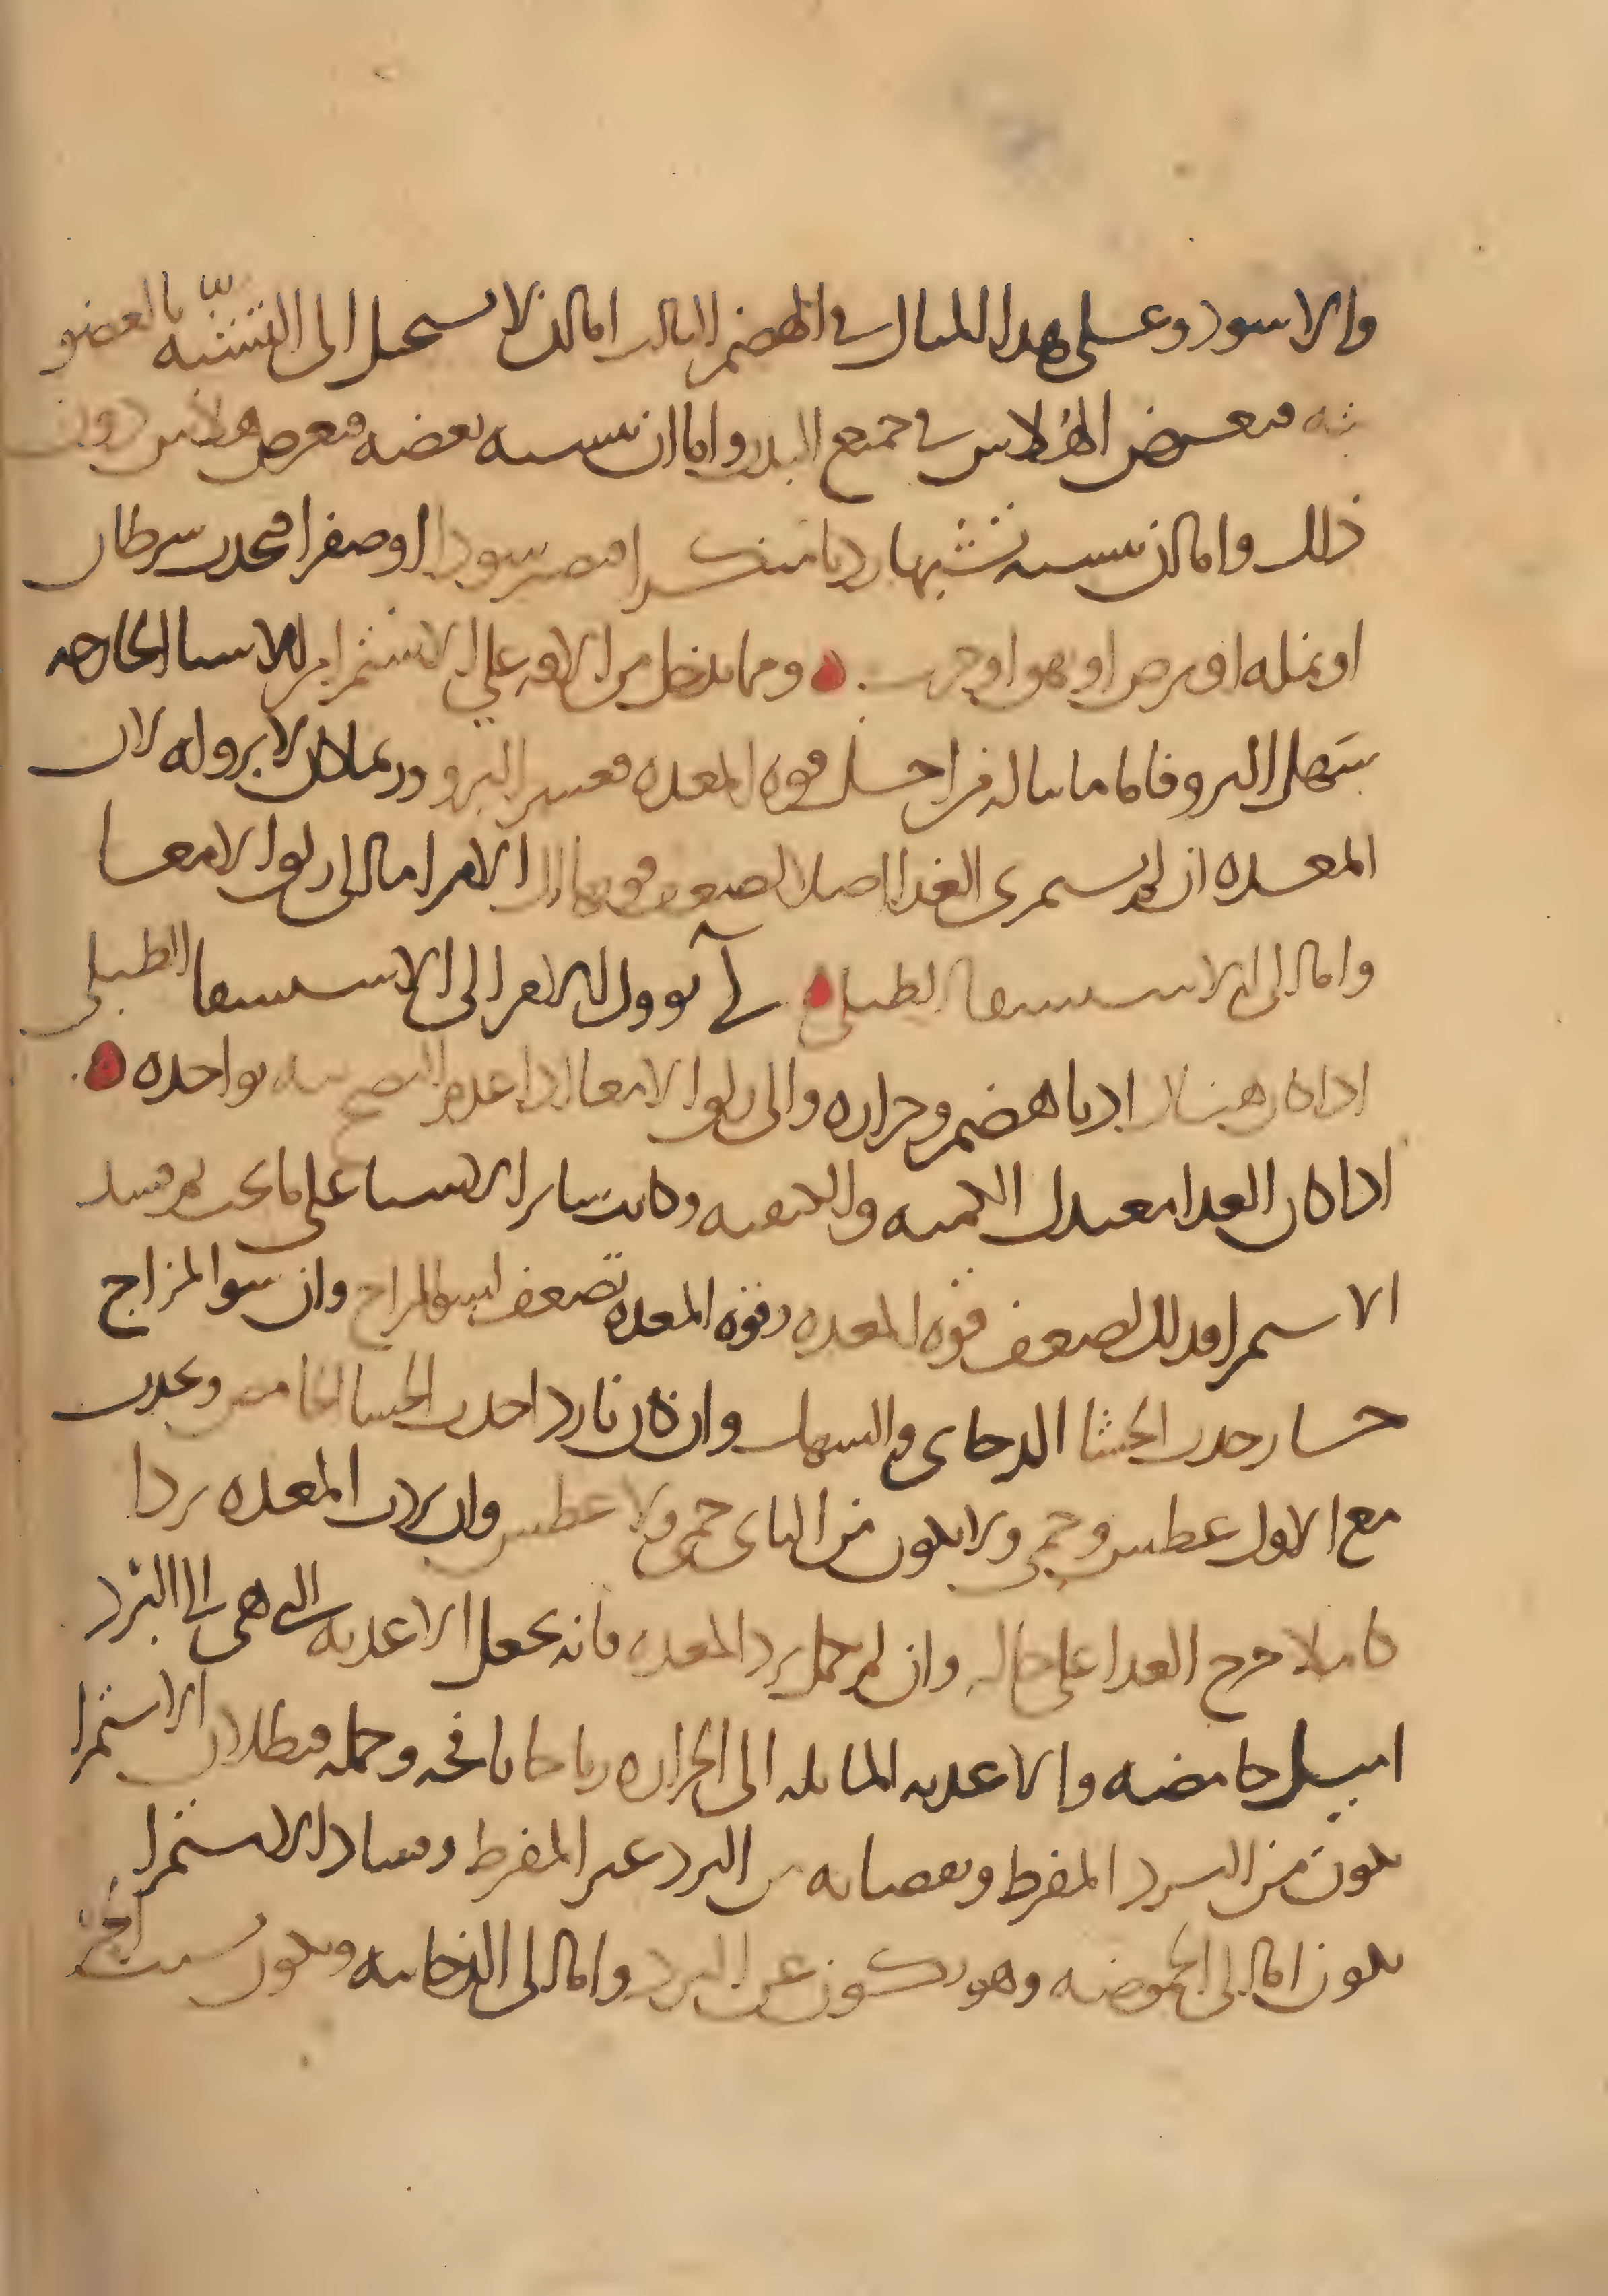 والاسود وعلى هذا المثال في الهضم الثالث اما ان لا يستحيل الى التشبه بالعضو
فيعرض الهُلاس في جميع البدن واما ان يتشبه بعضه فيعرض هلاس دون
ذلك واما ان يتشبه تشبها رديا منكرا فيصير سودا او صفرا فيحدث سرطان
او نمله او برص او بهق او جرب . ومما يدخل من الافه على الاستمرا من الاشيا الخارجه
يتهل البروفا فاما ما يناله من اجل قوه المعده فعسر البرو وربما كان لا برو له لان
المعده ان لم يستمرى الغذا اصلا لضعف قوتها ال الامر اما الى زلق الامعا
واما الى الاستسقا الطبلى . لى يوول الامر الى الاستسقا الطبلى
اذا كان هناك ادنا هضم وحراره والى زلق الامعا اذا عدم بواحده .
اذا كان الغدا معتدل الكميه والكيفيه وكانت ساير الاشيا على ما يجب ثم فسد
الاستمرا فدلك لضعف قوه المعده وقوه المعده تضعف لسو المزاج وان سو المزاج
حار حدث الجشا الدخانى والسهك وان كان باردا حدث الجشا الحامض ويحدث
مع الاول عطش وحمى ولا يكون من الثانى حمى ولا عطش وان بردت المعده بردا
كاملا خرج الغدا على حاله وان لم يكمل برد المعده فانه يجعل الاغديه التى هى الى البرد
اميل حامضه والاغديه المايله الى الحراره رياحا نافخه وجمله فبطلان الاستمرا
يكون من البرد المفرط ونقصانه من البرد غير المفرط وفساد الاستمرا
يكون اما الى الحموضه وهو يكون عن البرد واما الى الدخانيه ويكون بسبب الحر